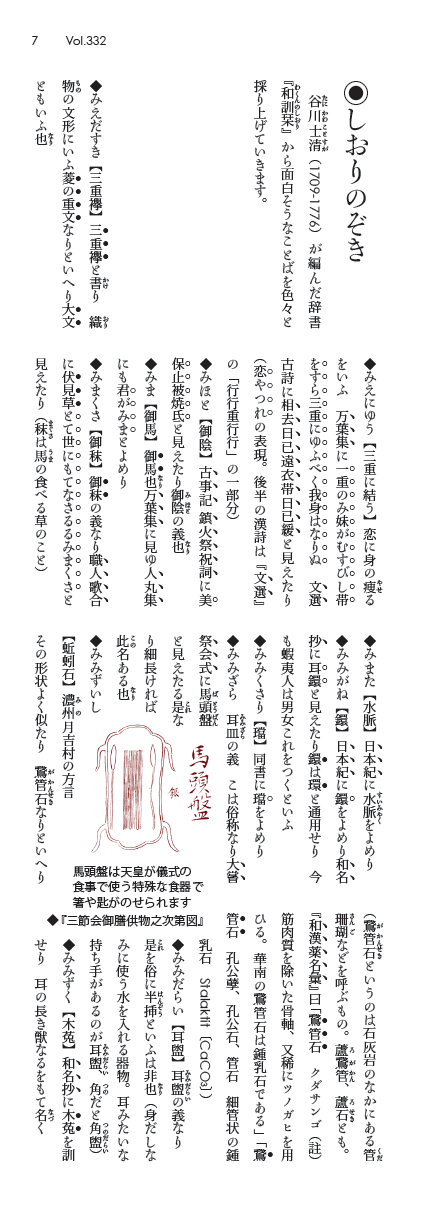 7 Vol.332
◉しおりのぞき
谷川士清（1709-1776）が編んだ辞書
『和訓栞』から面白そうなことばを色々と
採り上げていきます。
◆みえだすき【三重襷】三重襷と書り　織
物の文形にいふ菱の重文なりといへり大文
ともいふ也
◆みえにゆう【三重に結う】恋に身の痩る
をいふ　万葉集に一重のみ妹がむすびし帯
をすら三重にゆふべく我身はなりぬ　文選
古詩に相去日已遠衣帯日已緩と見えたり
（恋やつれの表現。後半の漢詩は『文選』
の「行行重行行」の一部分）
◆みほと【御陰】古事記 鎮火祭祝詞に美
保止被焼氐と見えたり御陰の義也
◆みま【御馬】御馬也万葉集に見ゆ人丸集
にも君がみまとよめり
◆みまくさ【御秣】御秣の義なり職人歌合
に伏見草とて世にもてなさるるみまくさと
見えたり（秣は馬の食べる草のこと）
◆みまた【水脈】日本紀に水脈をよめり
◆みみがね【鐶】日本紀に鐶をよめり和名
抄に耳鐶と見えたり鐶は環と通用せり　今
も蝦夷人は男女これをつくといふ
◆みみくさり【璫】同書に璫をよめり
◆みみざら　耳皿の義　こは俗称なり大嘗
祭会式に馬頭盤
と見えたる是な
り細長ければ
此名ある也
◆みみずいし
【蚯蚓石】濃州月吉村の方言
その形状よく似たり　鵞管石なりといへり
馬頭盤
銀
馬頭盤は天皇が儀式の
食事で使う特殊な食器で
箸や匙がのせられます
◆『三節会御膳供物之次第図』
（鵞管石というのは石灰岩のなかにある管
珊瑚などを呼ぶもの。蘆鵞管、蘆石とも。
『和漢薬名彙』曰「鵞管石　クダサンゴ（註）
筋肉質を除いた骨軸、又稀にツノガヒを用
ひる。華南の鵞管石は鍾乳石である」「鵞
管石　孔公孽、孔公石、管石　細管状の鍾
乳石　Stalakitt［CaCO₃］）
◆みみだらい【耳盥】耳盥の義なり
是を俗に半挿といふは非也（身だしな
みに使う水を入れる器物。耳みたいな
持ち手があるのが耳盥、角だと角盥）
◆みみずく【木菟】和名抄に木菟を訓
せり　耳の長き獣なるをもて名く